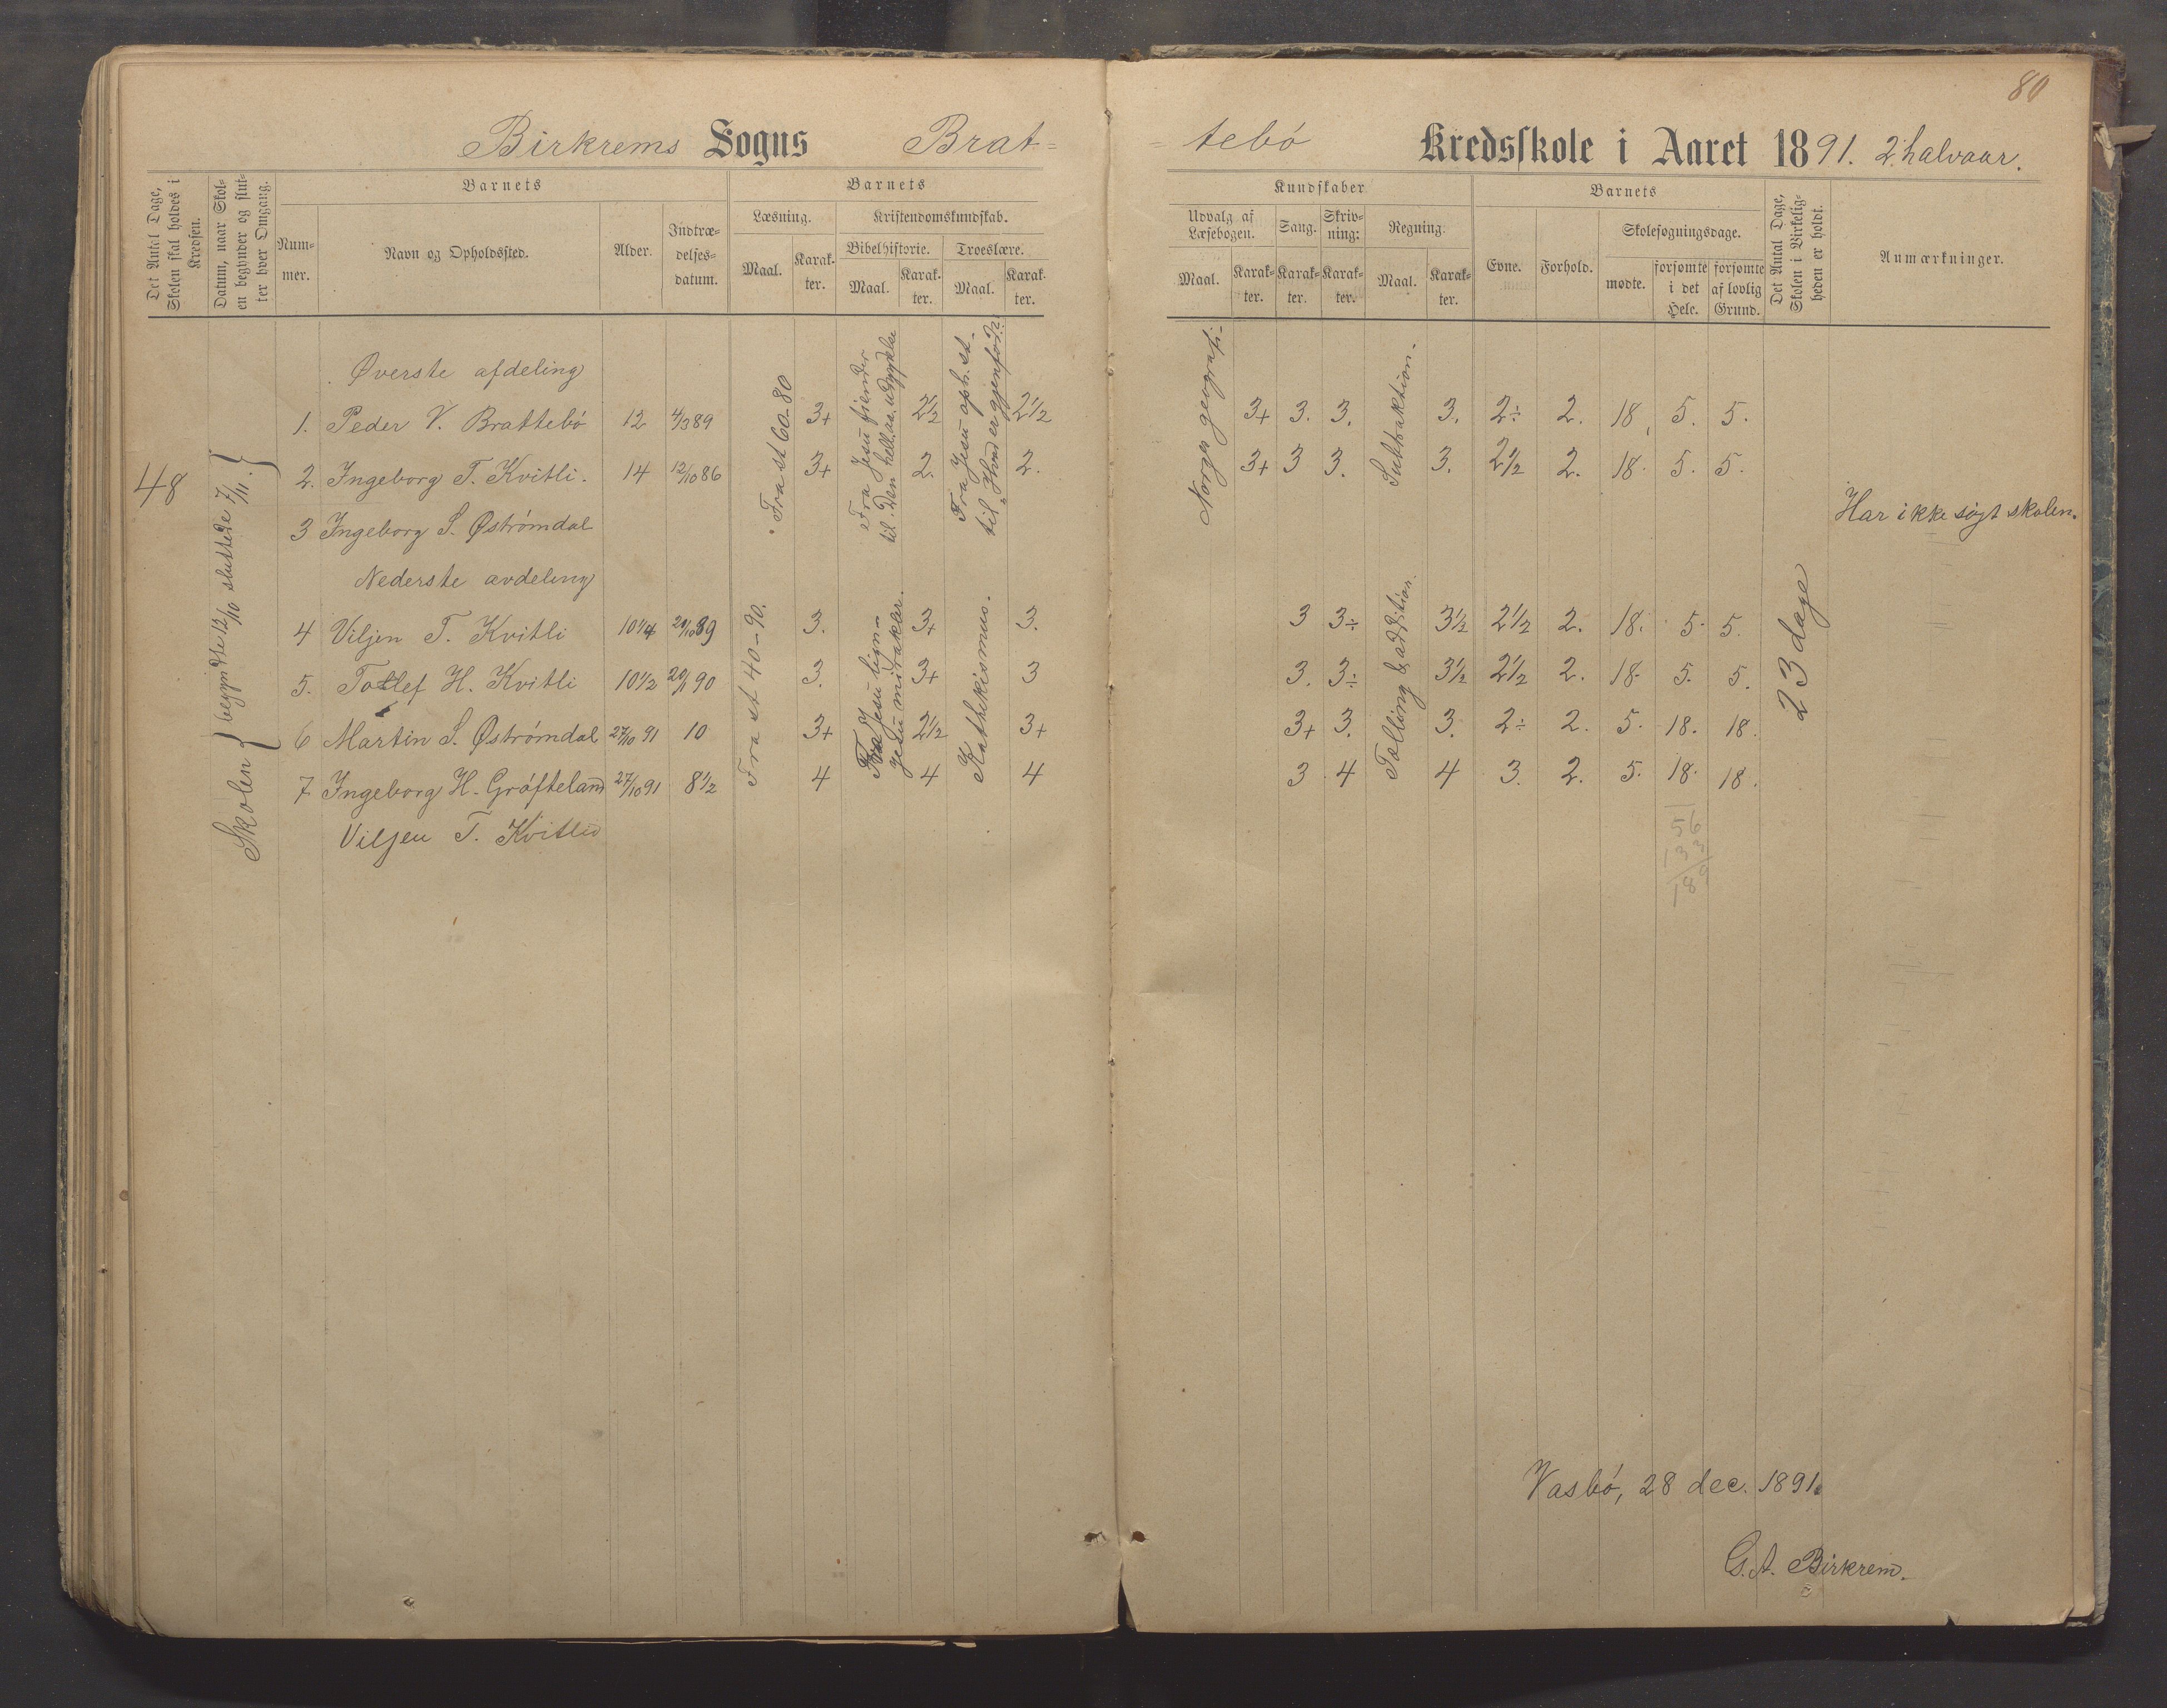 80
Birkrems Sogns Brat=
=tebö Kredsskole i Aaret 1891. 2. halvaar.
Det Antal Dage, Skolen skal holdes i Kredsen.
Datum, naar Skolen begynder og slutter hver Omgang.
Barnets
Nummer.
Navn og Opholdssted.
Alder.
Indtrædelsesdatum.
Barnets
Læsning.
Maal.
Karakter.
Kristendomskundskab.
Bibelhistorie.
Maal.
Karakter.
Troeslære.
Maal.
Karakter.
Kundskaber
Udvalg af Læsebogen.
Maal.
Karakter.
Sang.
Karakter.
Skrivning:
Karakter.
Regning.
Maal.
Karakter.
Barnets
Evne.
Forhold.
Skolesøgningsdage.
mødte.
forsømte i det Hele.
forsømte af lovlig Grund.
Det Antal Dage, Skolen i Virkeligheden er holdt.
Anmærkninger.
48
Skolen { begyndte 12/10 sluttede 7/11. }
Fra st 60-80
Fra Jesu fiender
til. Den hell. aa. udgydelse
Fra Jesu oph. st.
til "Hvad er gjenfød.?
Norges geografi.
Subtraktion.
Øverste afdeling
1. Peder V. Brattebö 12 4/3 89 3+ 2½ 2½ 3+ 3. 3. 3. 2÷ 2. 18, 5. 5.
2. Ingeborg T. Kvitli. 14 12/10 86 3+ 2. 2. 3+ 3 3. 3. 2½ 2. 18. 5. 5.
3 Ingeborg S. Øströmdal Har ikke sögt skolen.
Nederste avdeling
Fra st 40-90.
Fra Jesu lign-
Jesu mirakler.
Kathekismus.
Talling & addition.
23 dage
4 Viljen T. Kvitli 10¼ 20/10 89 3. 3+ 3. 3 3÷ 3½ 2½ 2. 18. 5. 5.
5. Tollef H. Kvitli 10½ 20/1 90 3. 3+ 3 3. 3÷ 3½ 2½ 2. 18. 5. 5.
6 Martin S. Øströmdal 27/10 91 10 3+ 2½ 3+ 3+ 3. 3. 2÷ 2. 5. 18. 18.
7 Ingeborg H. Gröfteland 27/10 91 8½ 4 4 4 3 4 4 3. 2. 5. 18. 18.
Viljen T. Kvitli
56
133
189
Vasbö, 28 dec. 1891.
G. A. Birkrem.